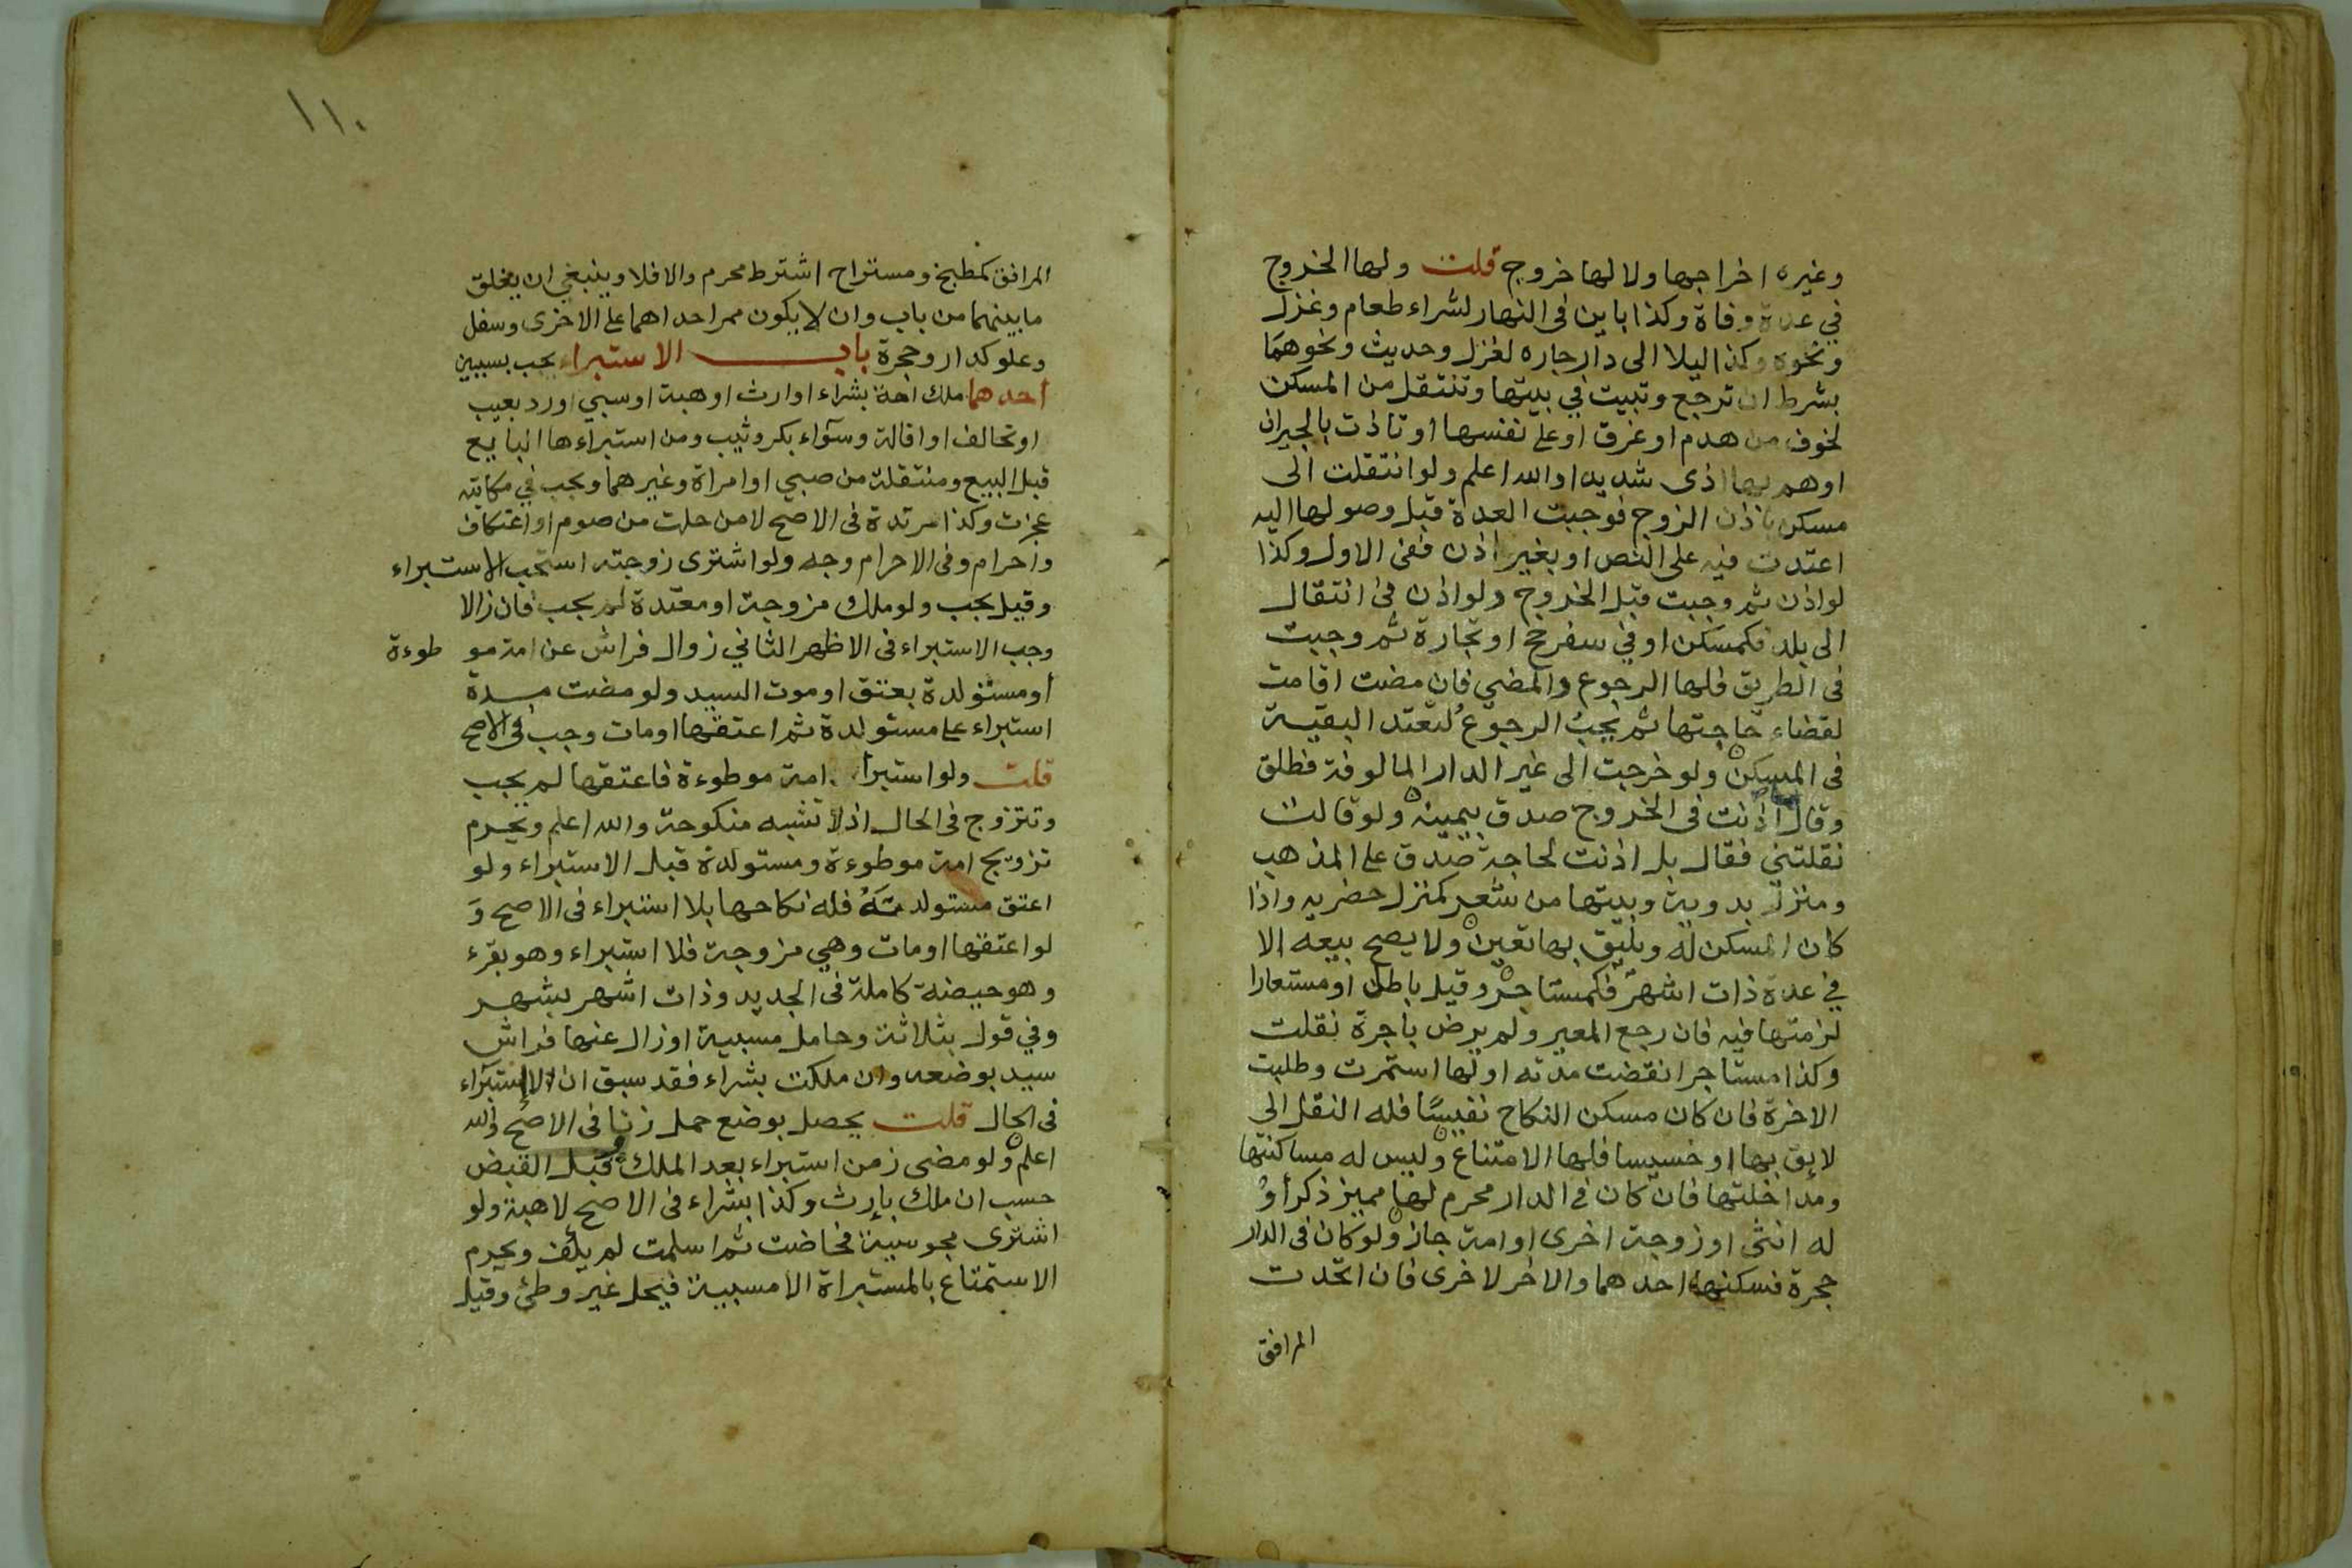 وغيره اخراجها ولا لها خروج قلت ولها الخروج
في عدة وفاة وكذا باين في النهار لشراء طعام وغزل
ونحوه وكذا ليلا الى دار جاره لغزل وحديث ونحوهما
بشرط ان ترجع وتبيت في بيتها وتنتقل من المسكن
لخوف من هدم او غرق او على نفسها او تاذت بالجيران
او هم بها اذى شديدا والله اعلم ولو انتقلت الى
مسكن باذن الزوج فوجبت العدة قبل وصولها اليه
اعتدت فيه على النص او بغير اذن ففى الاول وكذا
لو اذن ثم وجبت قبل الخروج ولو اذن في انتقال
الى بلد فكمسكن او في سفر حج او تجارة ثم وجبت
في الطريق فلها الرجوع والمضي فان مضت اقامت
لقضاء حاجتها ثم يجب الرجوع لتعتد البقية
في المسكن ولو خرجت الى غير الدار المالوفة فطلق
وقال اذنت في الخروج صدق بيمينه ولو قالت
نقلتني فقال بل اذنت لحاجة صدق على المذهب
ومنزل بدوية وبيتها من شعر كمنزل حضريه واذا
كان المسكن له ويليق بها تعين ولا يصح بيعه الا
في عدة ذات اشهر فكمستاجر وقيل باطل او مستعارا
لزمتها فيه فان رجع المعير ولم يرض باجرة نقلت
وكذا مستاجر انقضت مدته او لها استمرت وطلبت
الاخرة فان كان مسكن النكاح نفيسًا فله النقل الى
لايق بها او خسيسا فلها الامتناع وليس له مساكنتها
ومداخلتها فان كان في الدار محرم لها مميز ذكر او
له انثى او زوجة اخرى او امة جاز ولو كان في الدار
حجرة فسكنها احدهما والاخر لاخرى فان اتحدت
المرافق
١١٠
المرافق كمطبخ ومستراح اشترط محرم والا فلا وينبغي ان يغلق
ما بينهما من باب وان لا يكون ممر احداهما على الاخرى وسفل
وعلو كدار وحجرة باب الاستبراء يجب بسببين
احدهما ملك امة بشراء او ارث او هبة او سبي او رد بعيب
او تحالف او اقالة وسوآء بكر وثيب ومن استبراءها البايع
قبل البيع ومنتقلة من صبي او امراة وغيرهما ويجب في مكاتبة
عجزت وكذا مرتدة في الاصح لا من حلت من صوم او اعتكاف
واحرام وفى الاحرام وجه ولو اشترى زوجته استحب الاستبراء
وقيل يجب ولو ملك مزوجة او معتدة لم يجب فان زالا
وجب الاستبراء في الاظهر الثاني زوال فراش عن امة مو طوءة
او مستولدة بعتق او موت السيد ولو مضت مدة
استبراء على مستولدة ثم اعتقها او مات وجب في الاصح
قلت ولو استبرا امة موطوءة فاعتقها لم يجب
وتتزوج في الحال اذ لا تشبه منكوحة والله اعلم ويحرم
تزويج امة موطوءة ومستولدة قبل الاستبراء ولو
اعتق مستولدتَهُ فله نكاحها بلا استبراء في الاصح وَ
لو اعتقها او مات وهي مزوجة فلا استبراء وهو بقرء
وهو حيضة كاملة في الجديد وذات اشهر بشهر
وفي قول بثلاثة وحامل مسبية او زال عنها فراش
سيد بوضعه وان ملكت بشراء فقد سبق ان لا استبراء
في الحال قلت يحصل بوضع حمل زنا في الاصح والله
اعلم ولو مضى زمن استبراء بعد الملك وقبل القبض
حسب ان ملك بإرث وكذا بشراء في الاصح لا هبة ولو
اشترى مجوسية فحاضت ثم اسلمت لم يكف ويحرم
الاستمتاع بالمستبراة الا مسبية فيحل غير وطئ وقيل